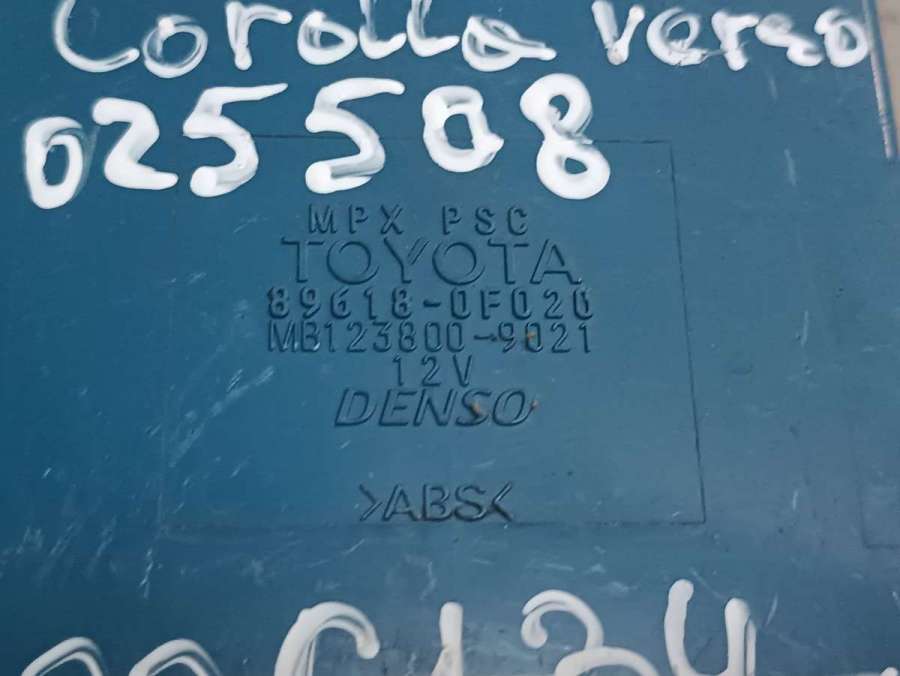 Corolla Verso
025508
MPX PSC
TOYOTA
89618-0F020
MB123800-9021
12V
DENSO
>ABS<